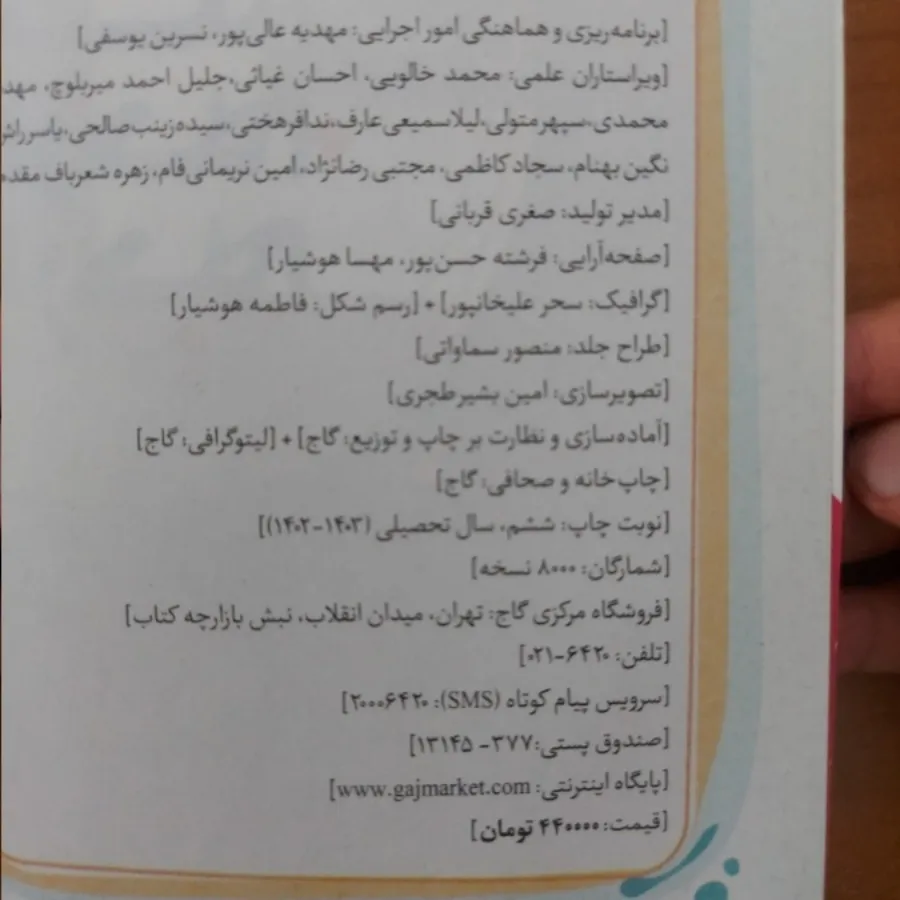 [برنامه‌ریزی و هماهنگی امور اجرایی: مهدیه عالی‌پور، نسرین یوسفی]
[ویراستاران علمی: محمد خالویی، احسان غیاثی، جلیل احمد میربلوچ،
محمدی، سپهر متولی، لیلا سمیعی عارف، ندا فرهختی، سیده زینب صالحی، یاسر
نگین بهنام، سجاد کاظمی، مجتبی رضانژاد، امین نریمانی‌فام، زهره شعرباف
[مدیر تولید: صغری قربانی]
[صفحه‌آرایی: فرشته حسن‌پور، مهسا هوشیار]
[گرافیک: سحر علیخانپور] + [رسم شکل: فاطمه هوشیار]
[طراح جلد: منصور سماواتی]
[تصویرسازی: امین بشیر طجری]
[آماده‌سازی و نظارت بر چاپ و توزیع: گاج] + [لیتوگرافی: گاج]
[چاپ‌خانه و صحافی: گاج]
[نوبت چاپ: ششم، سال تحصیلی (۱۴۰۳-۱۴۰۲)]
[شمارگان: ۸۰۰۰ نسخه]
[فروشگاه مرکزی گاج: تهران، میدان انقلاب، نبش بازارچه کتاب]
[تلفن: ۶۴۲۰-۰۲۱]
[سرویس پیام کوتاه (SMS): ۲۰۰۰۶۴۲۰]
[صندوق پستی: ۳۷۷- ۱۳۱۴۵]
[پایگاه اینترنتی: www.gajmarket.com]
[قیمت: ۴۴۰۰۰۰ تومان]